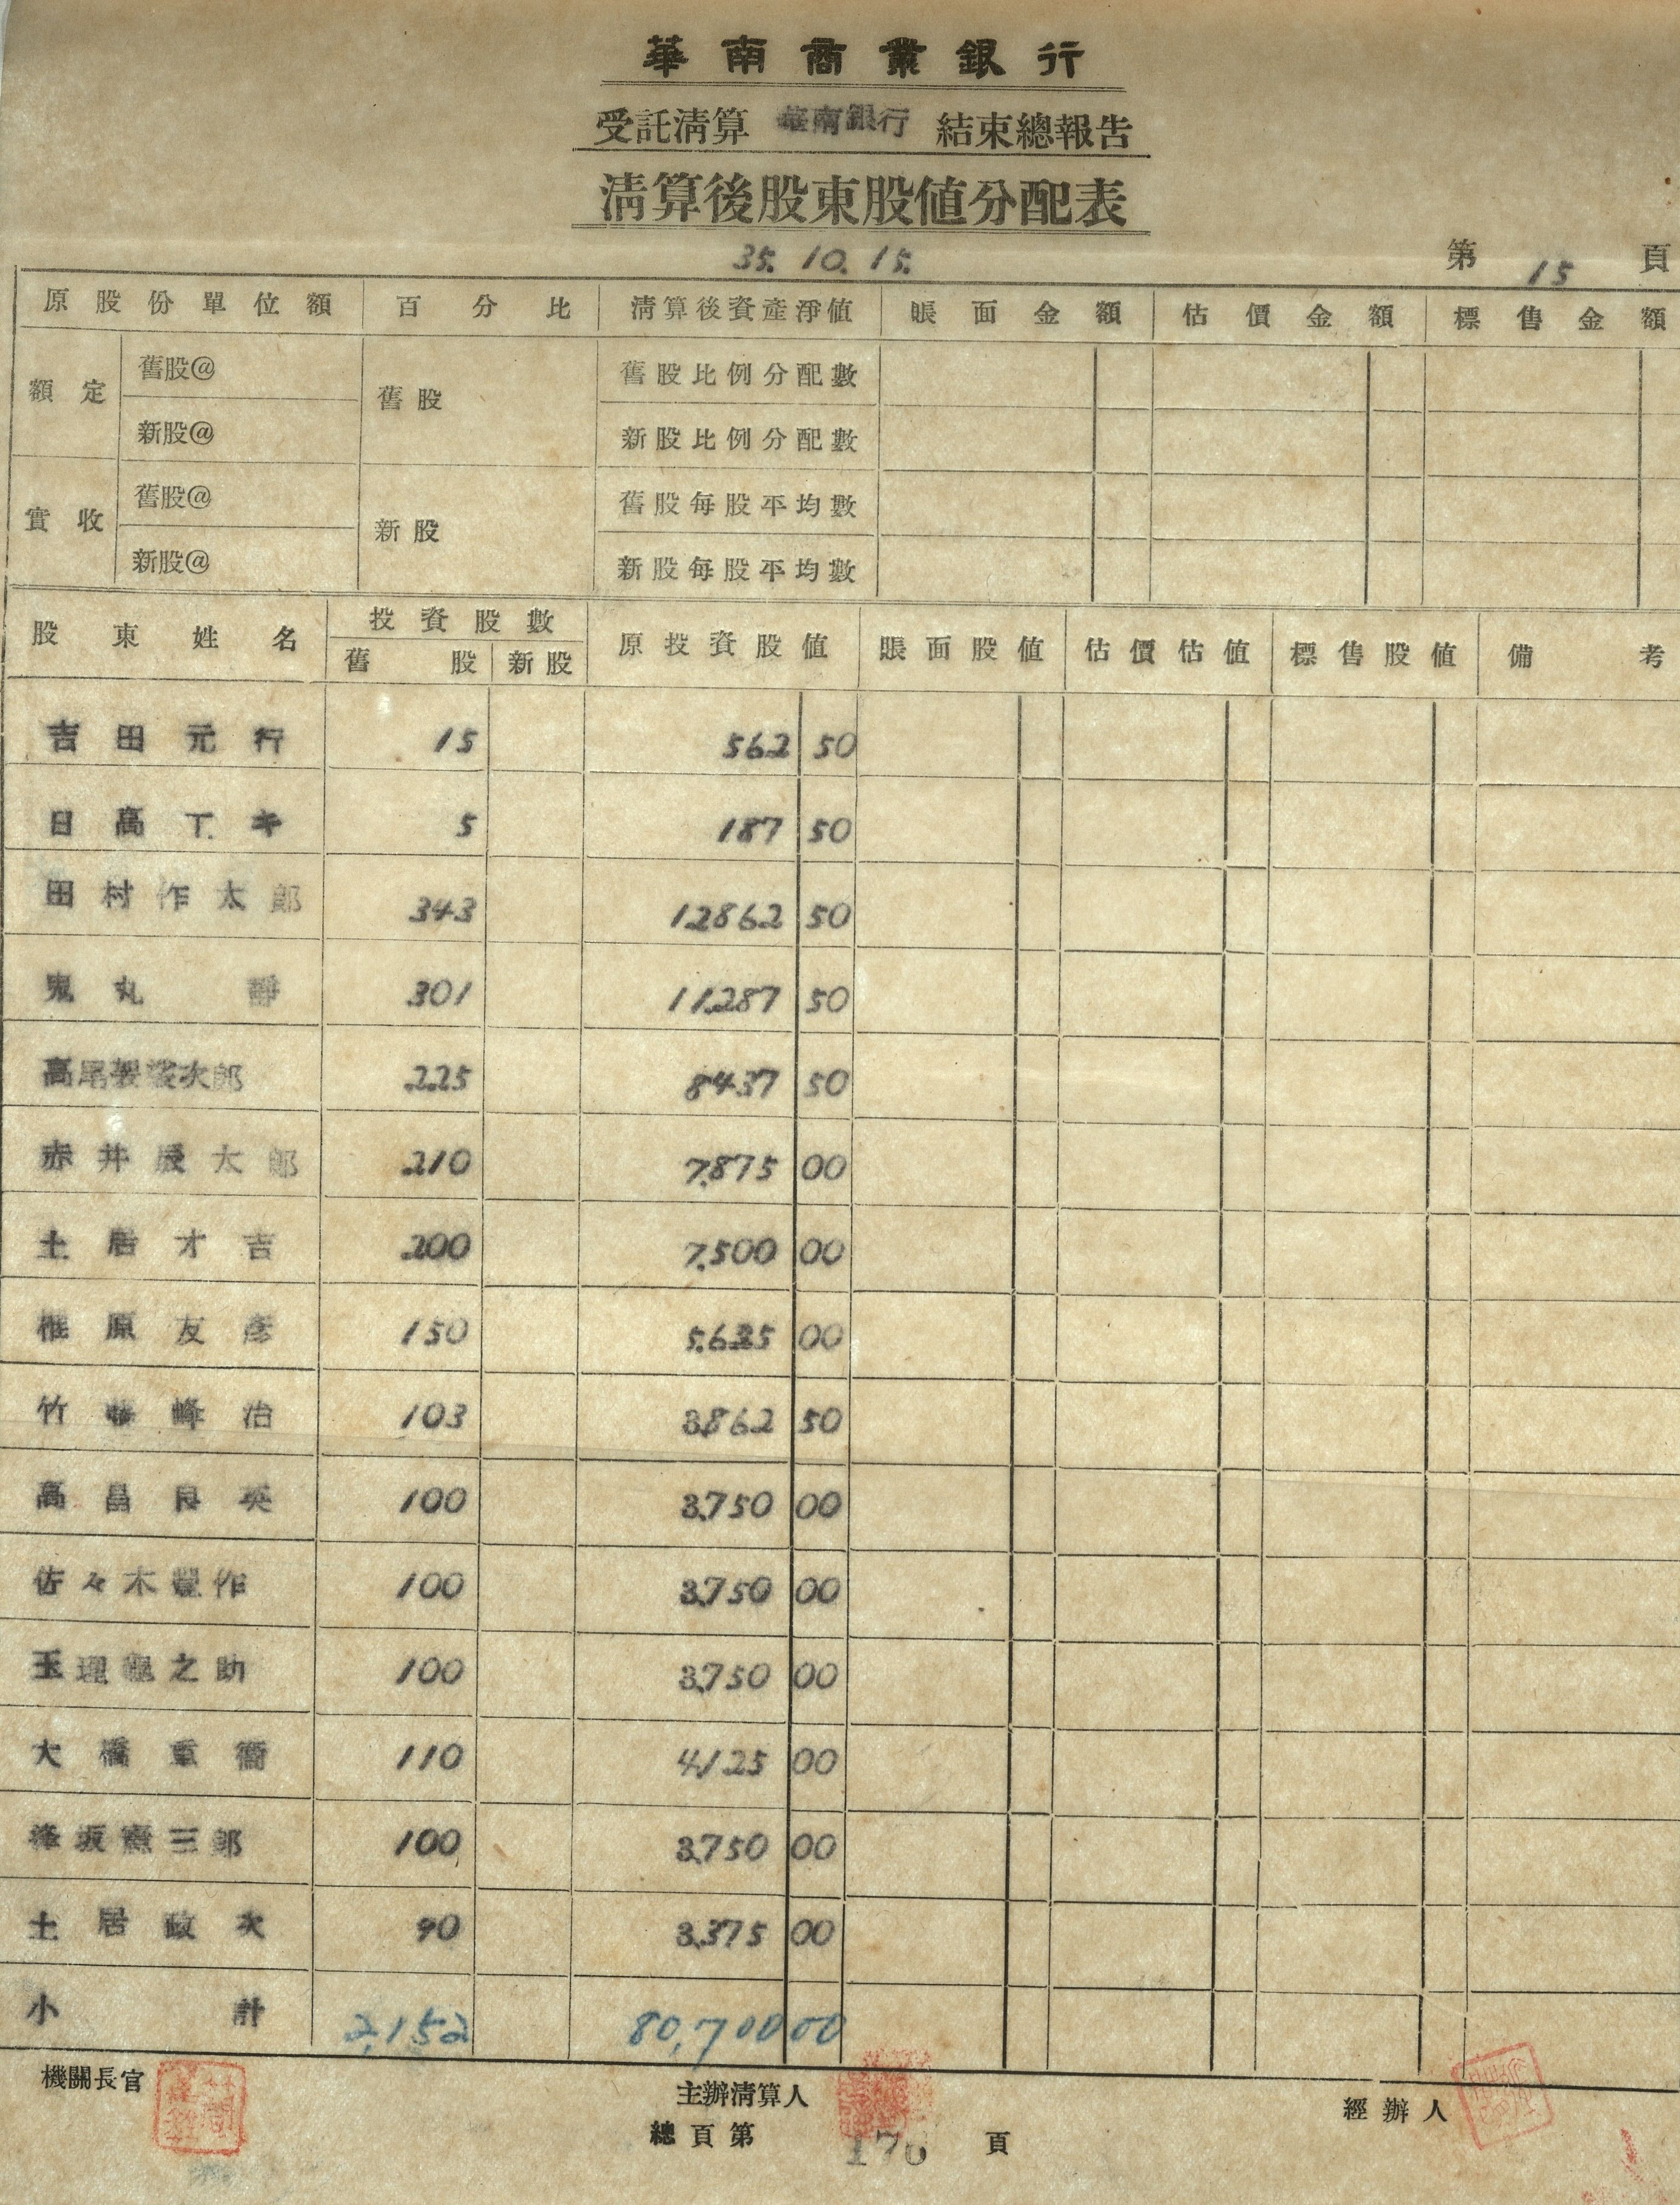 華南商業銀行
受託清算 華南銀行 結束總報告
清算後股東股值分配表
35. 10. 15.
第 15 頁
原股份單位額 百分比 清算後資產淨值 賬面金額 估價金額 標售金額
額定 舊股@ 舊股 舊股比例分配數
新股@ 新股比例分配數
實收 舊股@ 新股 舊股每股平均數
新股@ 新股每股平均數
股東姓名 投資股數 原投資股值 賬面股值 估價估值 標售股值 備考
舊股 新股
吉田元行 15 562 50
日高丁キ 5 187 50
田村作太郎 343 12862 50
鬼丸 靜 301 11,287 50
高尾袈裟次郎 225 8437 50
赤井辰太郎 210 7,875 00
土居才吉 200 7,500 00
椎原友彥 150 5,625 00
竹藤峰治 103 3,862 50
高昌良英 100 3,750 00
佐々木豐作 100 3,750 00
玉理龜之助 100 3,750 00
大橋重衞 110 4,125 00
坂憲三郎 100 3,750 00
土居政次 90 3,375 00
小計 2,152 80,700 00
機關長官 主辦清算人 經辦人
總頁第 170 頁